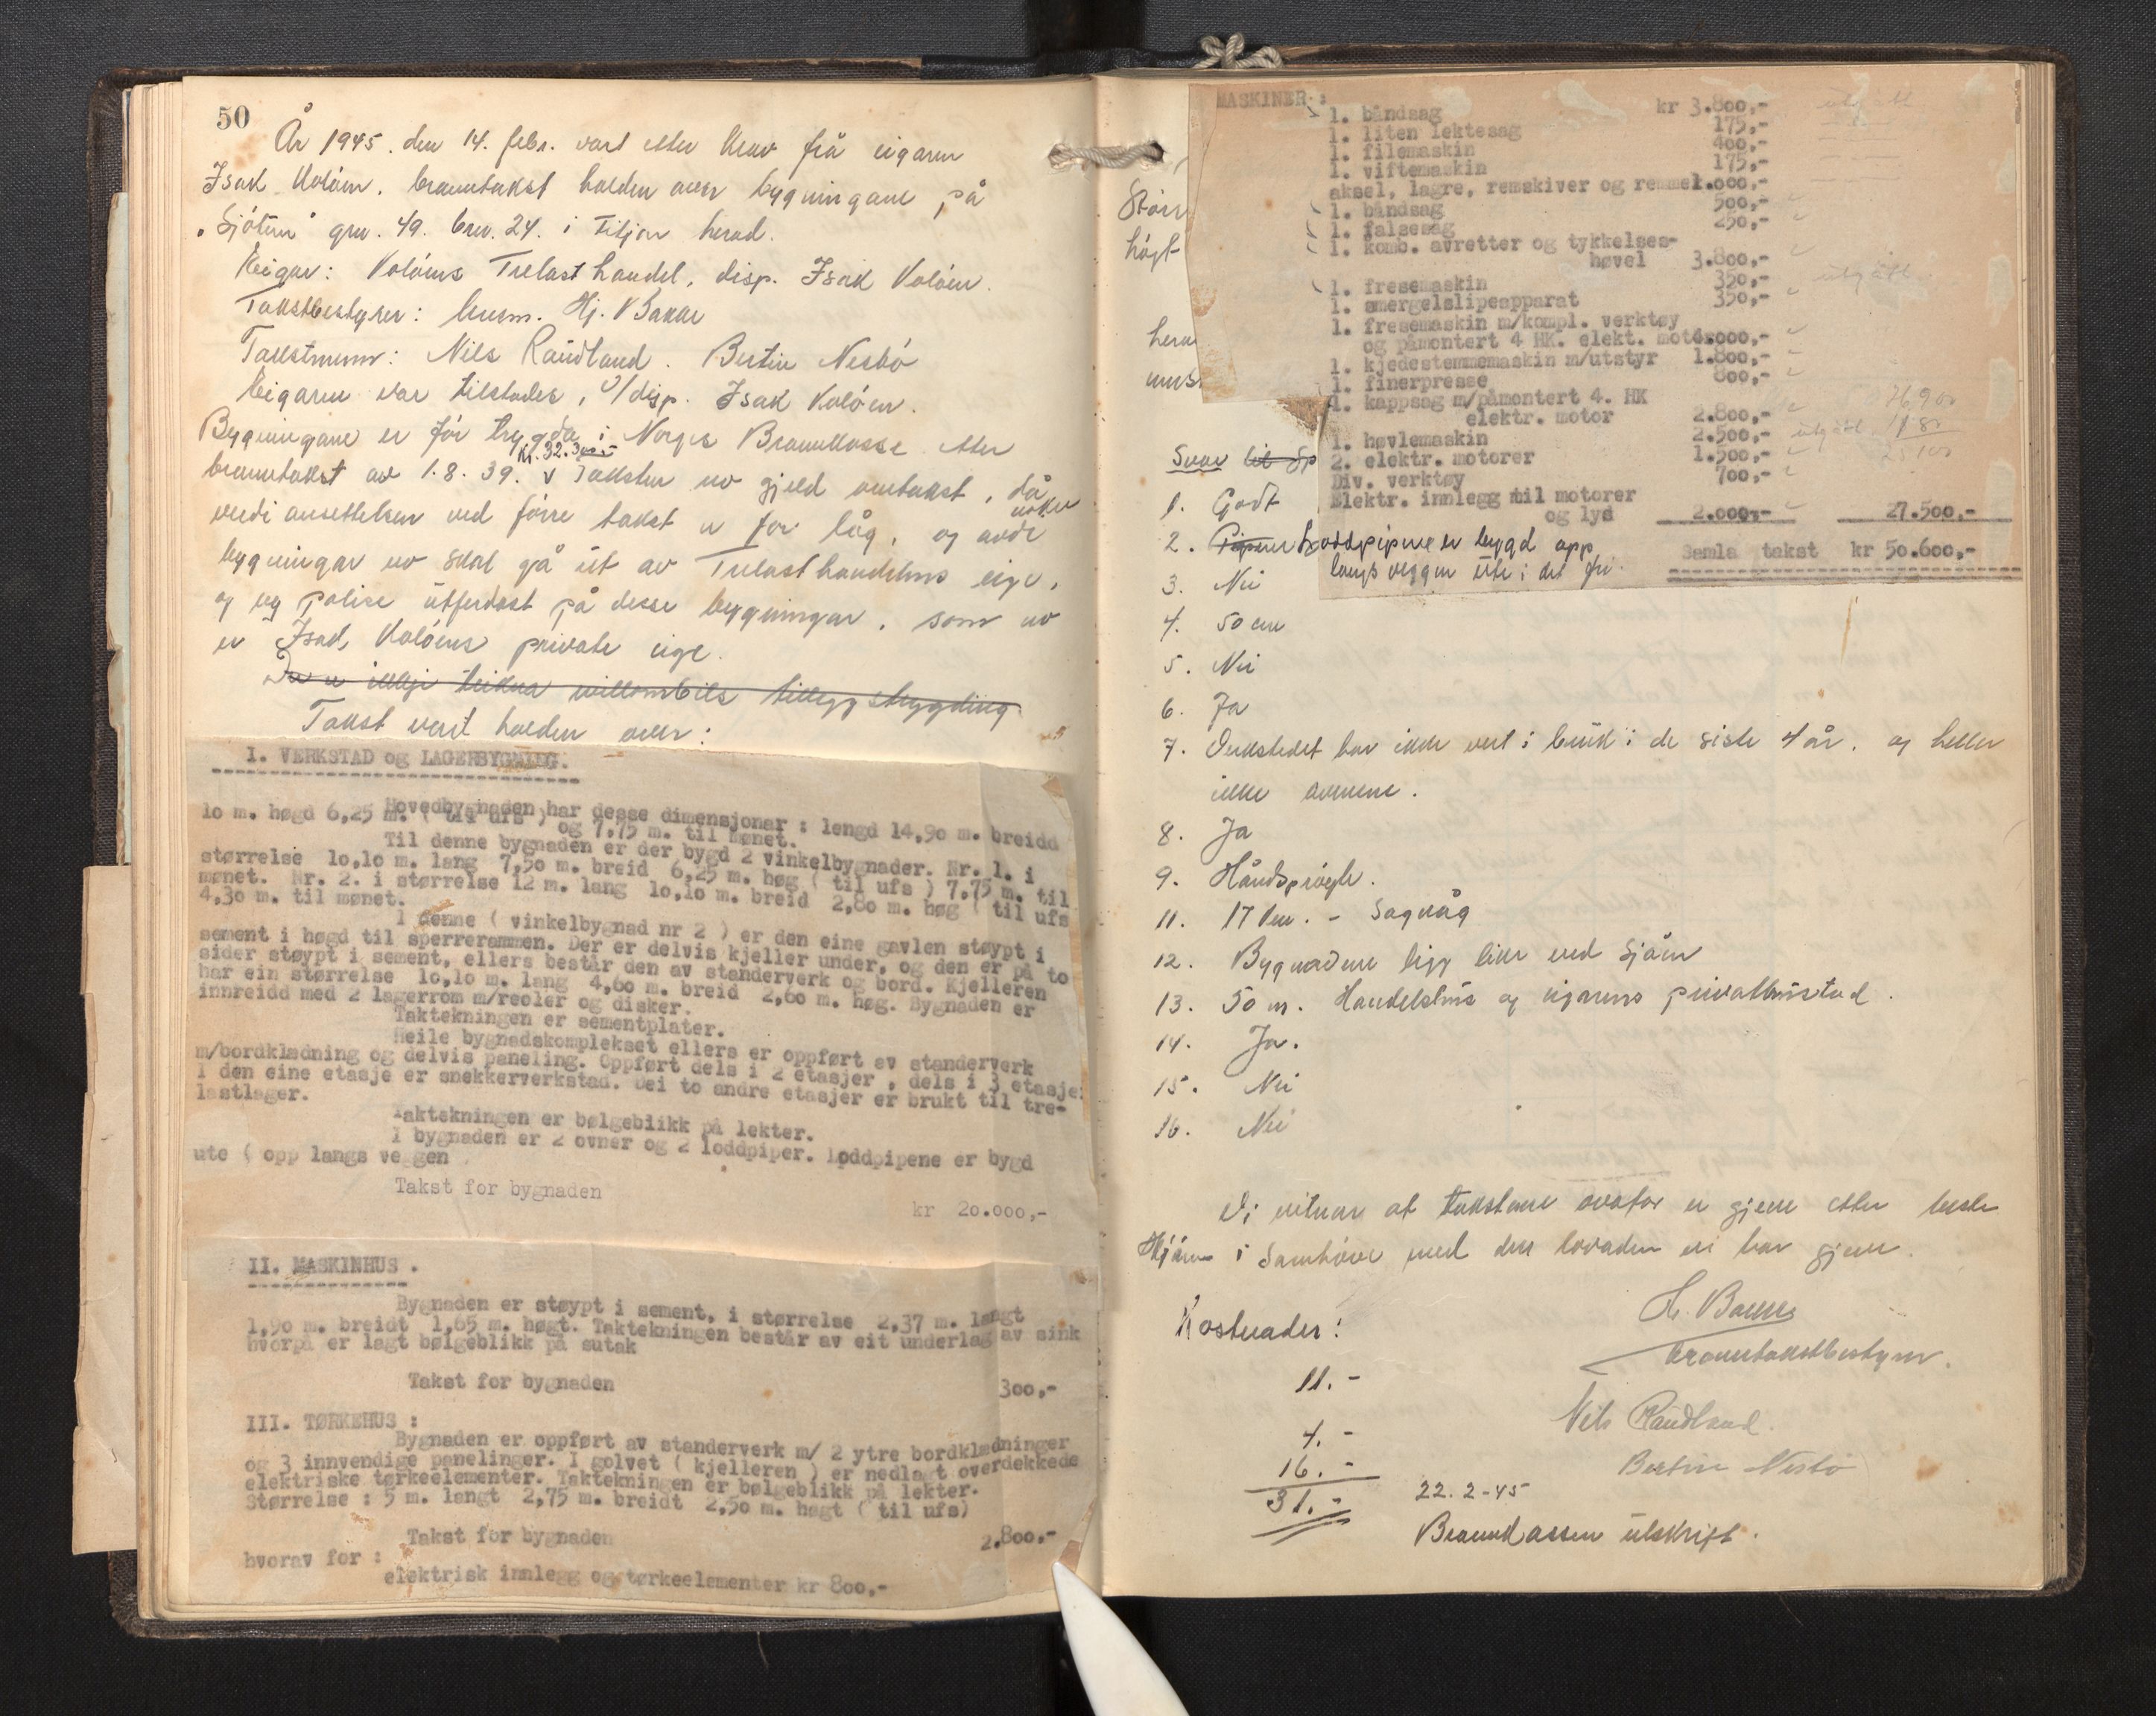 50
År 1945. den 14. febr. vart etter krav frå eigaren
Isak Koløen. branntakst halden over bygningane på
"Sjøtun" gnr. 49. bnr. 24. i Fitjar herad.
Eigar: Koløens Trelasthandel, disp. Isak Koløen.
Takstbestyrer: lensm. Hj. Bakke
Takstmenn: Nils Raudland. Bertin Nesbø
Eigaren var tilstades, v/disp. Isak Koløen.
Bygningane er før trygda i Norges Brannkasse etter
kr. 32.300.-
branntakst av 1.8.39. v Taksten no gjeld omtakst, då
verdiansettelsen ved førre takst er for låg, og nokre andre
bygningar no skal gå ut av Trelasthandelens eige,
og ny polise utferdast på desse bygningar, som no
er Isak Koløens private eige.
Takst vert halden over:
I. VERKSTAD og LAGERBYGNING.
Hovedbygnaden har desse dimensjonar : lengd 14,90 m. breidd
10 m. høgd 6,25 m. ( til ufs ) og 7,75 m. til mønet.
Til denne bygnaden er der bygd 2 vinkelbygnader. Nr. 1. i
størrelse 10,10 m. lang 7,50 m. breid 6,25 m. høg ( til ufs ) 7,75 m. til
mønet. Nr. 2. i størrelse 12 m. lang 10,10 m. breid 2,80 m. høg ( til ufs
4,30 m. til mønet.
I denne ( vinkelbygnad nr 2 ) er den eine gavlen støypt i
sement i høgd til sperrerammen. Der er delvis kjeller under, og den er på to
sider støypt i sement, ellers består den av standerverk og bord. Kjelleren
har ein størrelse 10,10 m. lang 4,60 m. breid 2,60 m. høg. Bygnaden er
innreidd med 2 lagerrom m/reoler og disker.
Taktekningen er sementplater.
Heile bygnadskomplekset ellers er oppført av standerverk
m/bordklædning og delvis paneling. Oppført dels i 2 etasjer , dels i 3 etasjer
I den eine etasje er snekkerverkstad. Dei to andre etasjer er brukt til tre-
lastlager.
Taktekningen er bølgeblikk på lekter.
I bygnaden er 2 ovner og 2 loddpiper. Loddpipene er bygd
ute ( opp langs veggen
Takst for bygnaden
kr 20.000,-
II. MASKINHUS .
Bygnaden er støypt i sement, i størrelse 2,37 m. langt
1,90 m. breidt 1,65 m. høgt. Taktekningen består av eit underlag av sink
hvorpå er lagt bølgeblikk på sutak
Takst for bygnaden 300,-
III. TØRKEHUS :
Bygnaden er oppført av standerverk m/ 2 ytre bordklædninger
og 3 innvendige panelinger. I golvet ( kjelleren ) er nedlagt overdekkede
elektriske tørkeelementer. Taktekningen er bølgeblikk på lekter.
Størrelse : 5 m. langt 2,75 m. breidt 2,50 m. høgt ( til ufs)
Takst for bygnaden 2.800,-
hvorav for :
elektrisk innlegg og tørkeelementer kr 800,-
MASKINER :
1. båndsag kr 3.800,- utgått
1. liten lektesag 175,-
1. filemaskin 400,-
1. viftemaskin 175,-
aksel, lagre, remskiver og remmer 1.000,-
1. båndsag 500,-
1. falsesag 250,-
1. komb. avretter og tykkelses-
høvel 3.800,-
1. fresemaskin 350,- utgått
1. smergelslipeapparat 350,-
1. fresemaskin m/kompl. verktøy
og påmontert 4 HK. elekt. motor .000,-
1. kjedestemmemaskin m/utstyr 1.800,-
1. finerpresse 800,-
1. kappsag m/påmontert 4. HK
elektr. motor 2.800,-
1. høvlemaskin 2.500,- utgått
2. elektr. motorer 1.500,-
Div. verktøy 700,-
Elektr. innlegg til motorer
og lys 2.000,- 27.500,-
Samla takst kr 50.600,-
Størr
høgt
hera
Svar til Sp
1. Godt
2. Piperne Loddpipene er bygd opp
langs veggen ute i det fri.
3. Nei
4. 50 cm
5. Nei
6. Ja
7. Verkstedet har ikke vert i bruk i de siste 4 år. og heller
ikke ovnene.
8. Ja
9. Håndsprøyte.
11. 17 km. - Sagvåg
12. Bygnadene ligg like ved sjøen
13. 50 m. Handelshus og eigarens privatbustad.
14. Ja.
15. Nei
16. Nei
Vi vitnar at takstane ovafor er gjeve etter beste
skjøn i samhøve med den lovnaden vi har gjeve.
H. Bakke
branntakstbestyrer.
Nils Raudland.
Bertin Nesbø
Kostnader:
11.-
4.-
16.-
31.-
22.2-45
Brannkassen utskrift.